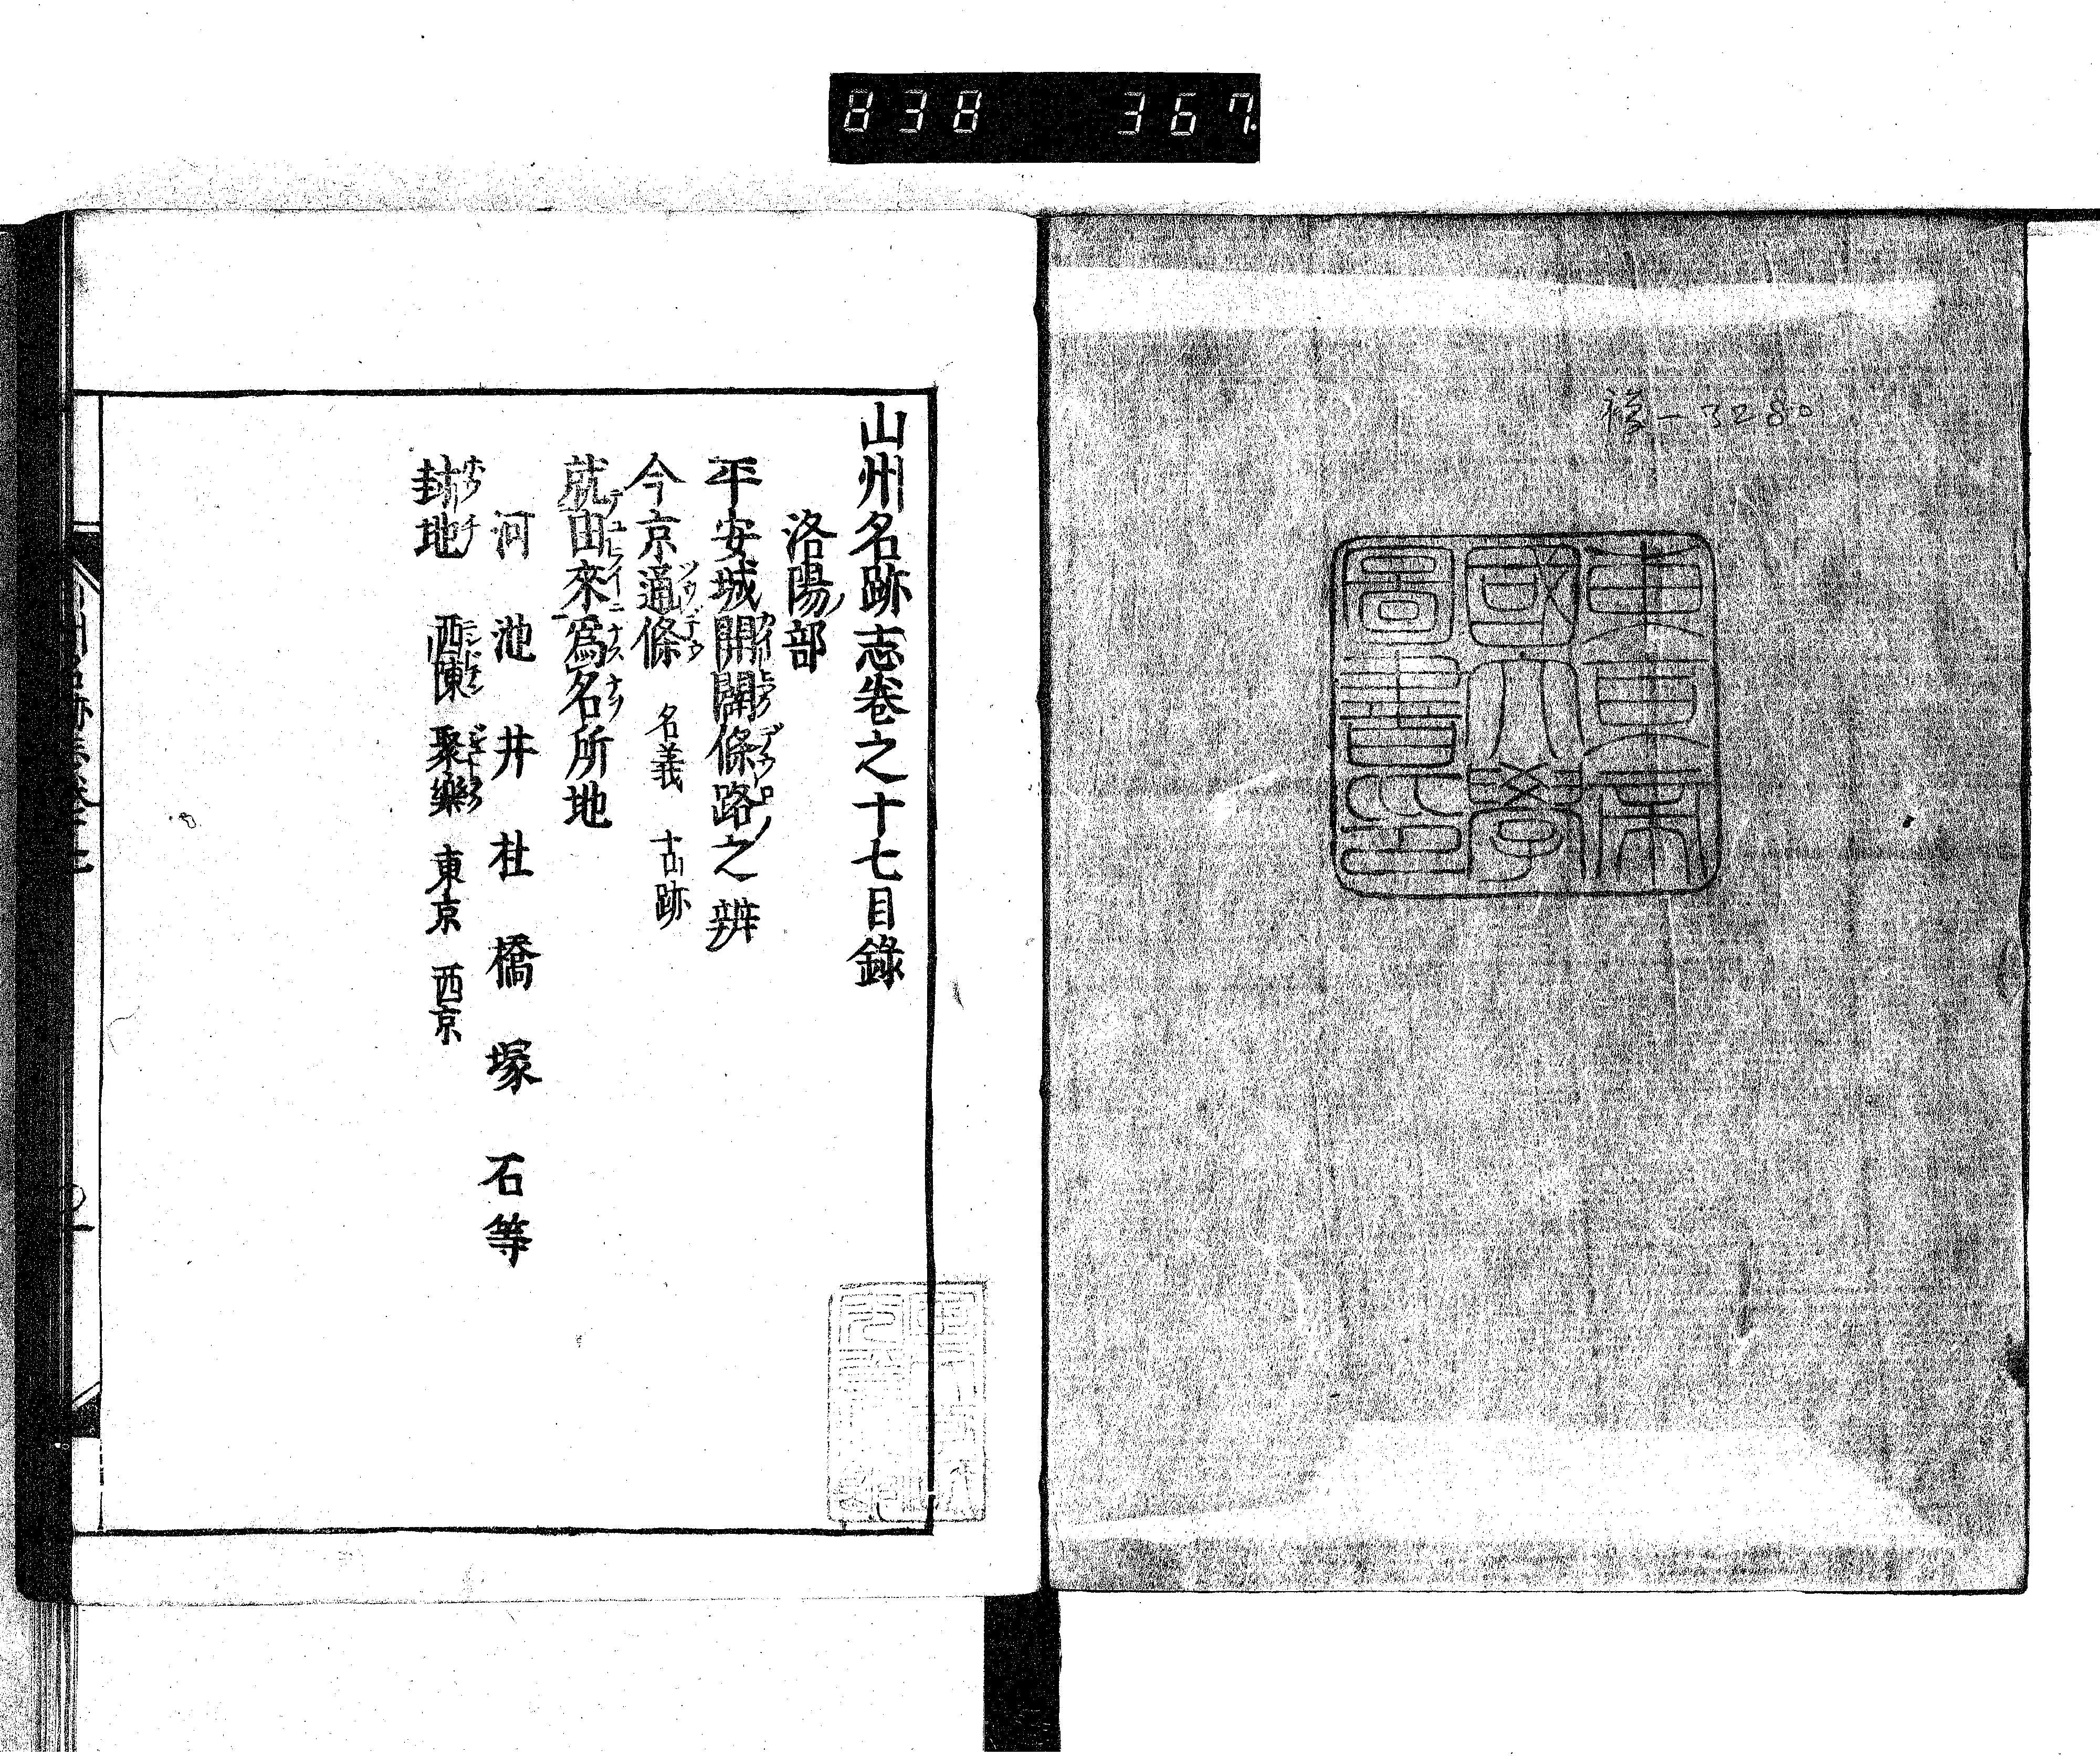 838 367.
-3280
東京帝
國大學
圖書之印
山州名跡志卷之十七目錄
洛陽ノ部
平安城開闢條路ノ之辨
今京通條 名義 古跡
就由來爲名所地
河 池 井 杜 橋 塚 石等
封地 西陳 聚樂 東京 西京